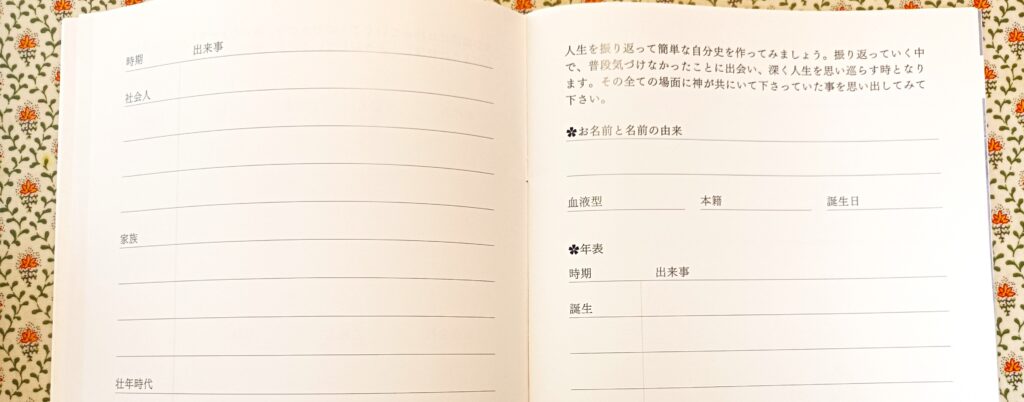 人生を振り返って簡単な自分史を作ってみましょう。振り返っていく中
で、普段気づけなかったことに出会い、深く人生を思い巡らす時となり
ます。その全ての場面に神が共にいて下さっていた事を思い出してみて
下さい。
✿お名前と名前の由来
血液型 本籍 誕生日
✿年表
時期 出来事
誕生
時期 出来事
社会人
家族
壮年時代